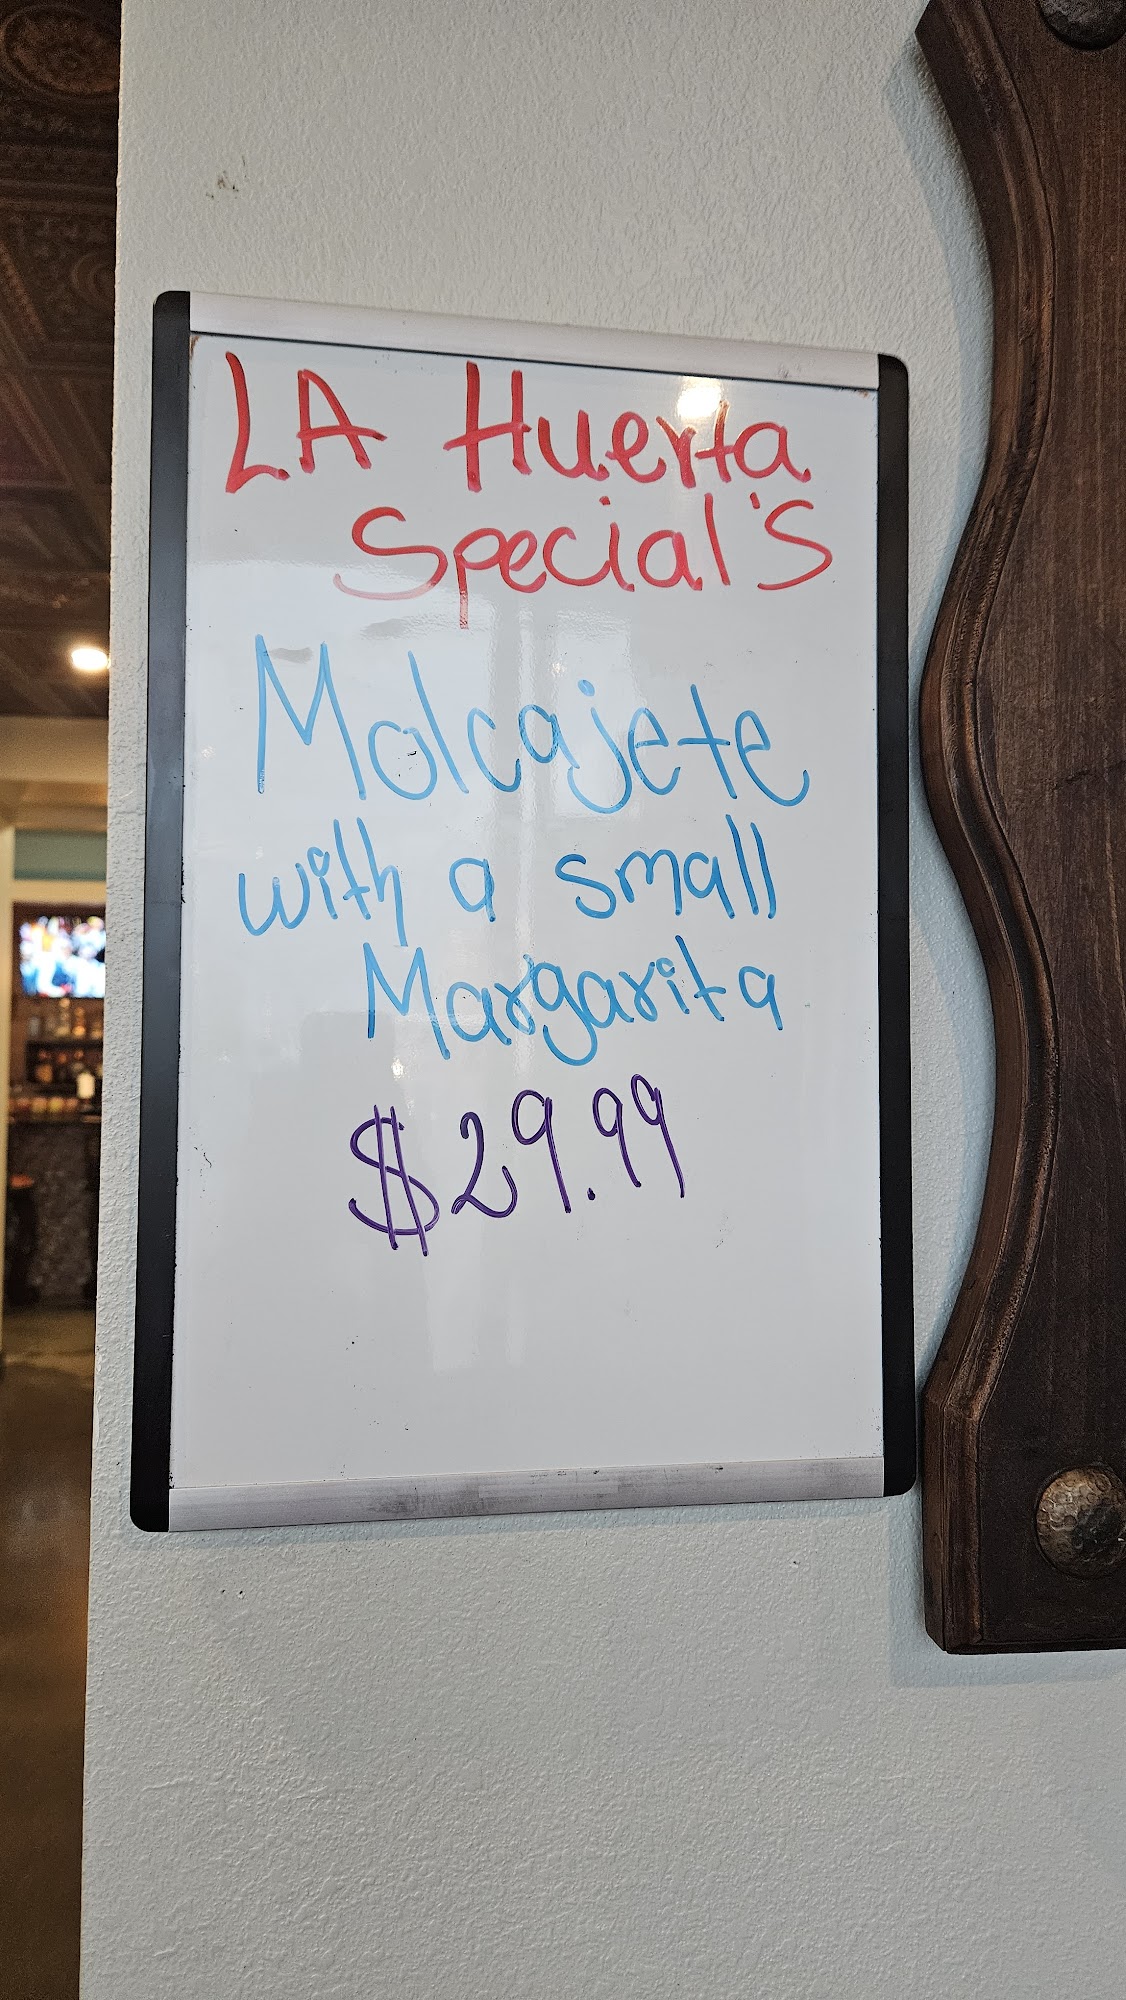 LA Huerta
Special's
Molcajete
with a small
Margarita
$29.99